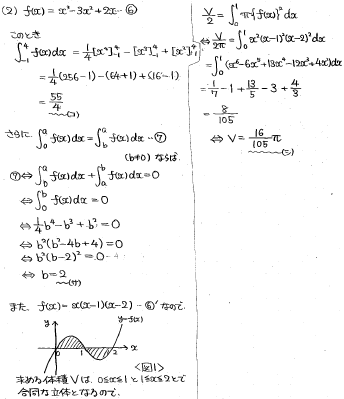 (2) f(x) = x³-3x²+2x … ⑥
このとき
∫₋₁⁴ f(x)dx = 1/4[x⁴]₋₁⁴ - [x³]₋₁⁴ + [x²]₋₁⁴
= 1/4(256-1) - (64+1) + (16-1)
= 55/4
さらに ∫₀ᵃ f(x)dx = ∫_bᵃ f(x)dx … ⑦
(b≠0) ならば
⑦ ⇔ ∫₀ᵃ f(x)dx + ∫ₐᵇ f(x)dx = 0
⇔ ∫₀ᵇ f(x)dx = 0
⇔ 1/4 b⁴ - b³ + b² = 0
⇔ b²(b²-4b+4) = 0
⇔ b²(b-2)² = 0
⇔ b = 2
また, f(x) = x(x-1)(x-2) … ⑥′ なので,
y
y=f(x)
0 1 2 x
<図1>
求める体積Vは, 0≤x≤1と1≤x≤2とで
合同な立体となるので,
V/2 = ∫₀¹ π{f(x)}² dx
⇔ V/2π = ∫₀¹ x²(x-1)²(x-2)² dx
= ∫₀¹ (x⁶-6x⁵+13x⁴-12x³+4x²)dx
= 1/7 - 1 + 13/5 - 3 + 4/3
= 8/105
⇔ V = 16/105 π